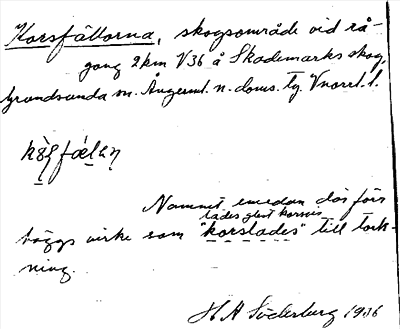 Korsfällorna, skogsområde vid rå-
gång 2km V36 å Skademarks skog,
Grundsunda sn. Ångerml. n. doms. tg. Vnorrl. l.
Namnet emedan där förr
lades glest korsvis
höggs virke som "korslades" till tork-
ning.
H A Söderberg 1936